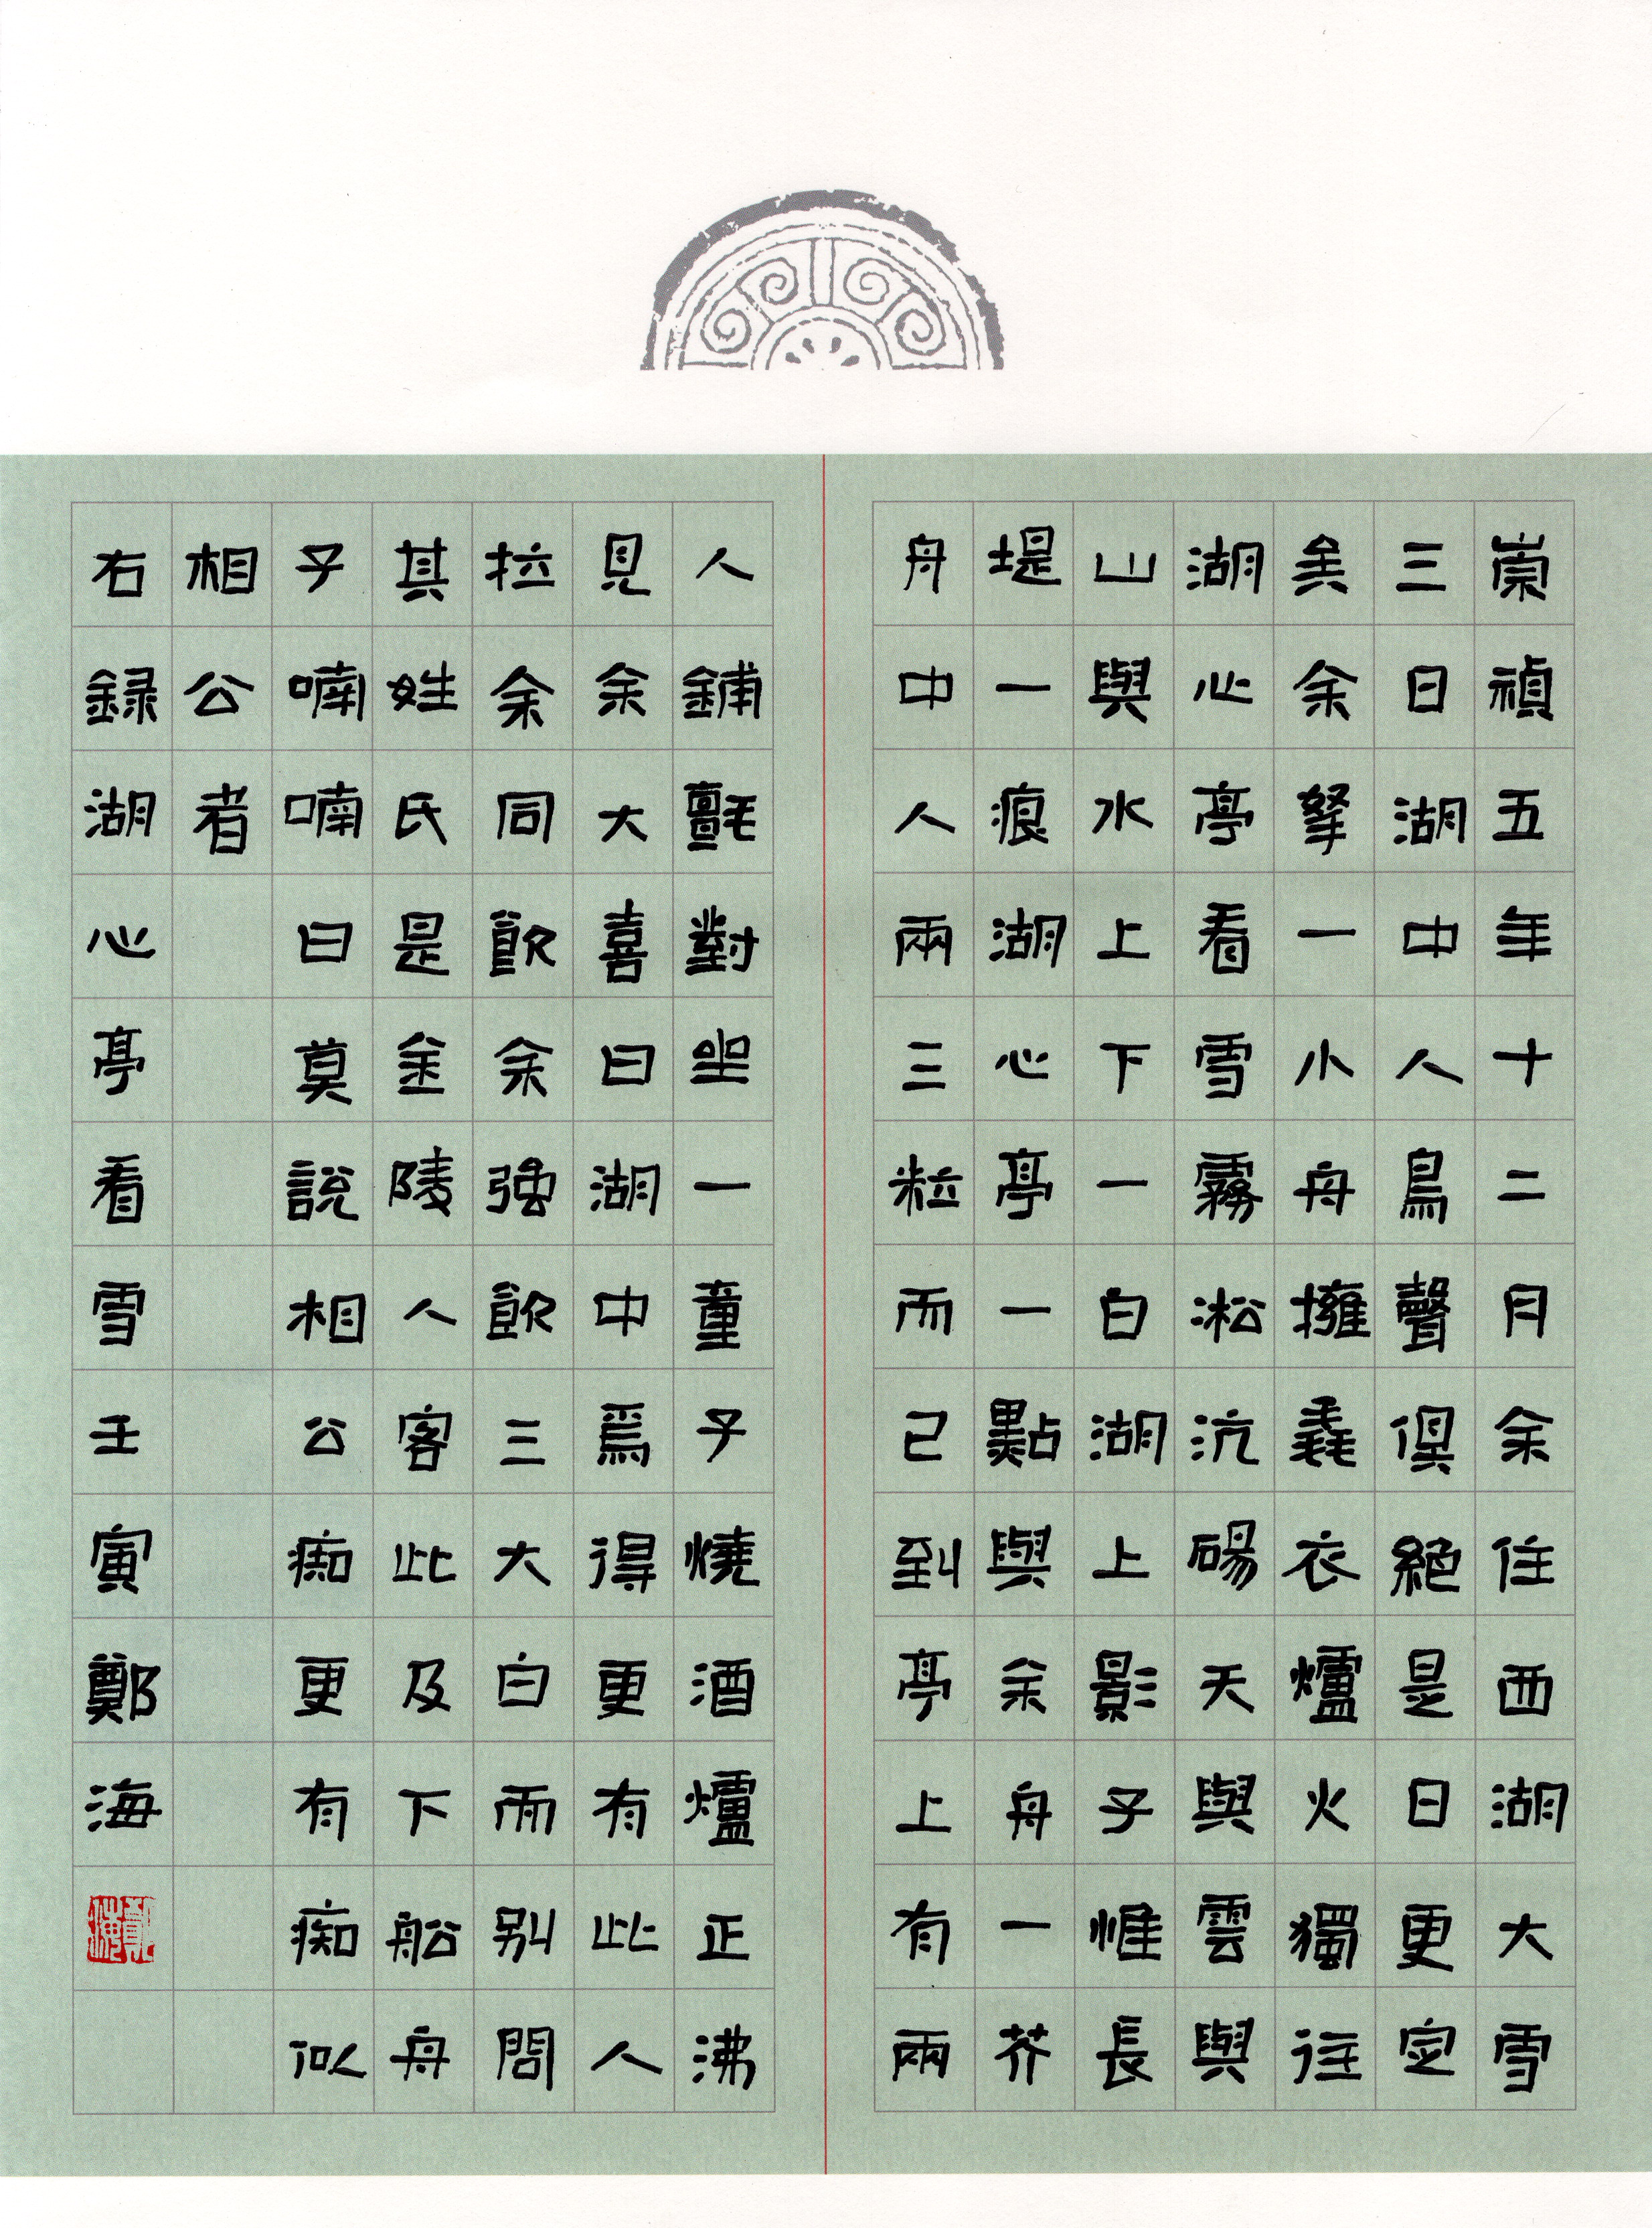 崇禎五年十二月余住西湖大雪
三日湖中人鳥聲俱絕是日更定
矣余拏一小舟擁毳衣爐火獨往
湖心亭看雪霧淞沆碭天與雲與
山與水上下一白湖上影子惟長
堤一痕湖心亭一點與余舟一芥
舟中人兩三粒而已到亭上有兩
人鋪氈對坐一童子燒酒爐正沸
見余大喜曰湖中焉得更有此人
拉余同飲余強飲三大白而別問
其姓氏是金陵人客此及下船舟
子喃喃曰莫說相公痴更有痴似
相公者
右錄湖心亭看雪壬寅鄭海
鄭海